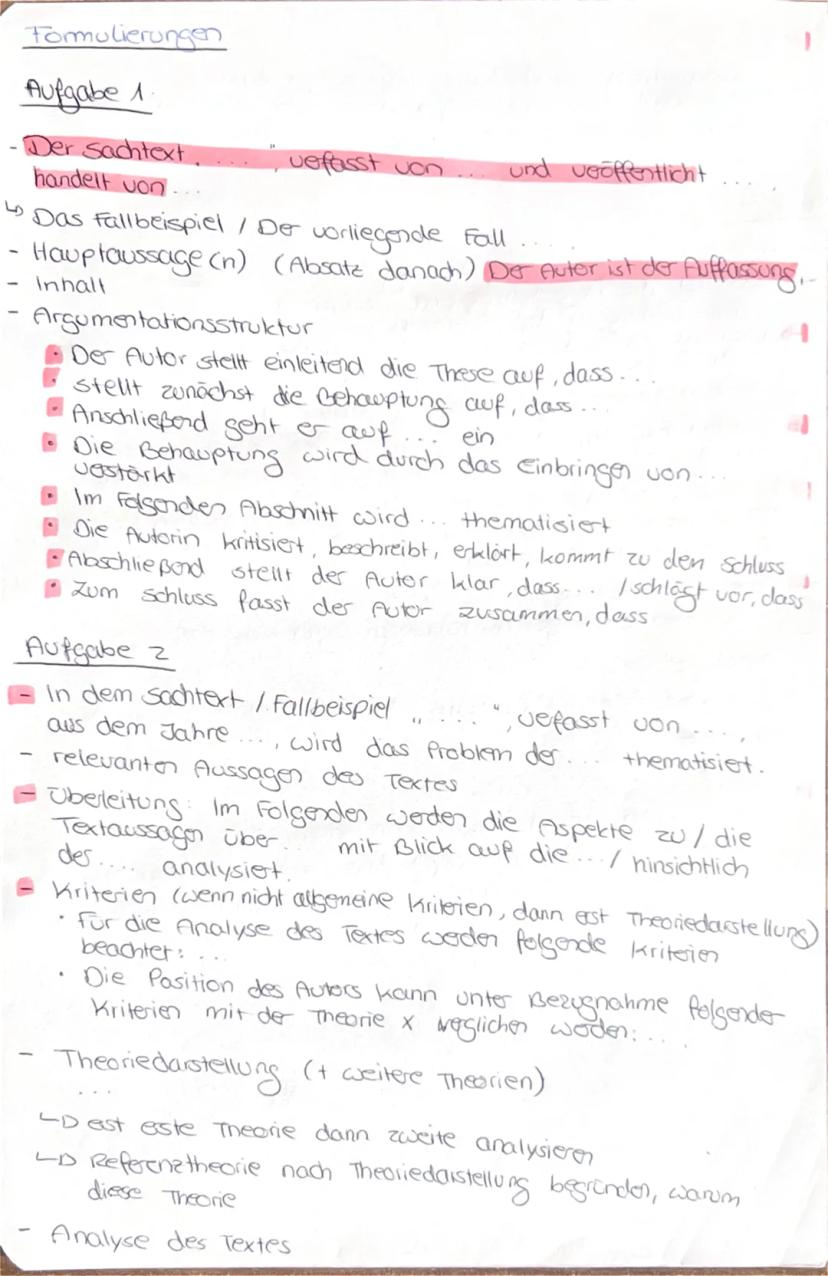 Formulierungen
Aufgabe 1.
- Der Sachtext „....", verfasst von .... und veröffentlicht ....
handelt von ...
↳ Das Fallbeispiel / Der vorliegende Fall ....
- Hauptaussage(n) (Absatz danach) Der Autor ist der Auffassung,..
- Inhalt
- Argumentationsstruktur
• Der Autor stellt einleitend die These auf, dass...
• stellt zunächst die Behauptung auf, dass ...
• Anschließend geht er auf ... ein
• Die Behauptung wird durch das Einbringen von ...
verstärkt
• Im Folgenden Abschnitt wird ... thematisiert
• Die Autorin kritisiert, beschreibt, erklärt, kommt zu den Schluss
• Abschließend stellt der Autor klar, dass .... / schlägt vor, dass
• Zum Schluss fasst der Autor zusammen, dass
Aufgabe 2
- In dem Sachtext / Fallbeispiel „ ..... ", verfasst von ....,
aus dem Jahre ...., wird das Problem der ... thematisiert.
- relevanten Aussagen des Textes
- Überleitung: Im Folgenden werden die Aspekte zu / die
Textaussagen über ... mit Blick auf die ... / hinsichtlich
des ... analysiert.
- Kriterien (wenn nicht allgemeine Kriterien, dann erst Theoriedarstellung)
• Für die Analyse des Textes werden folgende Kriterien
beachtet: ...
• Die Position des Autors kann unter Bezugnahme folgender
Kriterien mit der Theorie x verglichen werden: ....
- Theoriedarstellung (+ weitere Theorien)
...
↳ erst erste Theorie dann zweite analysieren
↳ Referenztheorie nach Theoriedarstellung begründen, warum
diese Theorie
- Analyse des Textes